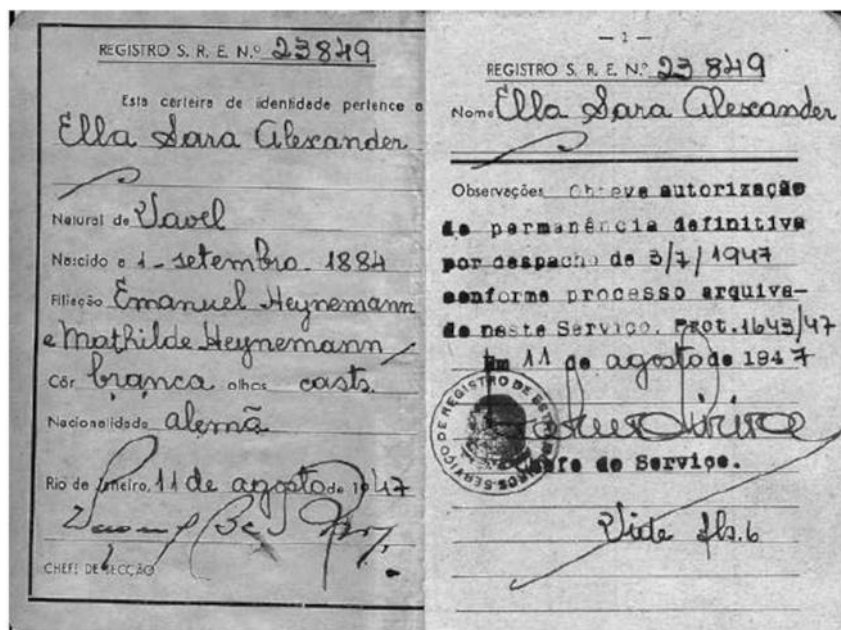 REGISTRO S. R. E. N.º 23849
Esta carteira de identidade pertence a
Ella Sara Alexander
Natural de Vavel
Nascido a 1 - setembro - 1884
Filiação Emanuel Heynemann
e Mathilde Heynemann
Côr branca olhos casts.
Nacionalidade alemã
Rio de Janeiro, 11 de agosto de 1947
CHEFE DE SECÇÃO
— 1 —
REGISTRO S. R. E. N.º 23849
Nome Ella Sara Alexander
Observações Obteve autorização
de permanência definitiva
por despacho de 3/7/1947
conforme processo arquiva-
do neste Serviço. Prot.1643/47
Em 11 de agosto de 1947
SERVIÇO DE REGISTRO DE
Chefe do Serviço.
Vide fls. 6